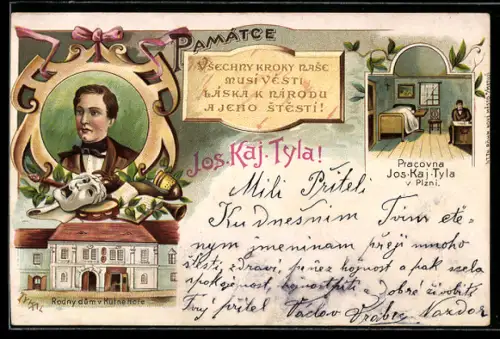 PAMÁTCE
VŠECHNY KROKY NAŠE
MUSÍ VÉSTI
LÁSKA K NÁRODU
A JEHO ŠTĚSTÍ!
Jos. Kaj. Tyla!
Pracovna
Jos. Kaj. Tyla
v Plzni.
Rodný dům v Kutné Hoře
Milí Příteli
Ku dnešním Tvým ctě-
ným jmeninám přeji mnoho
štěstí, zdraví, peněz hojnost a pak
spokojenost, a dobré živobití
Tvůj přítel Václav Vrabec Nazdar